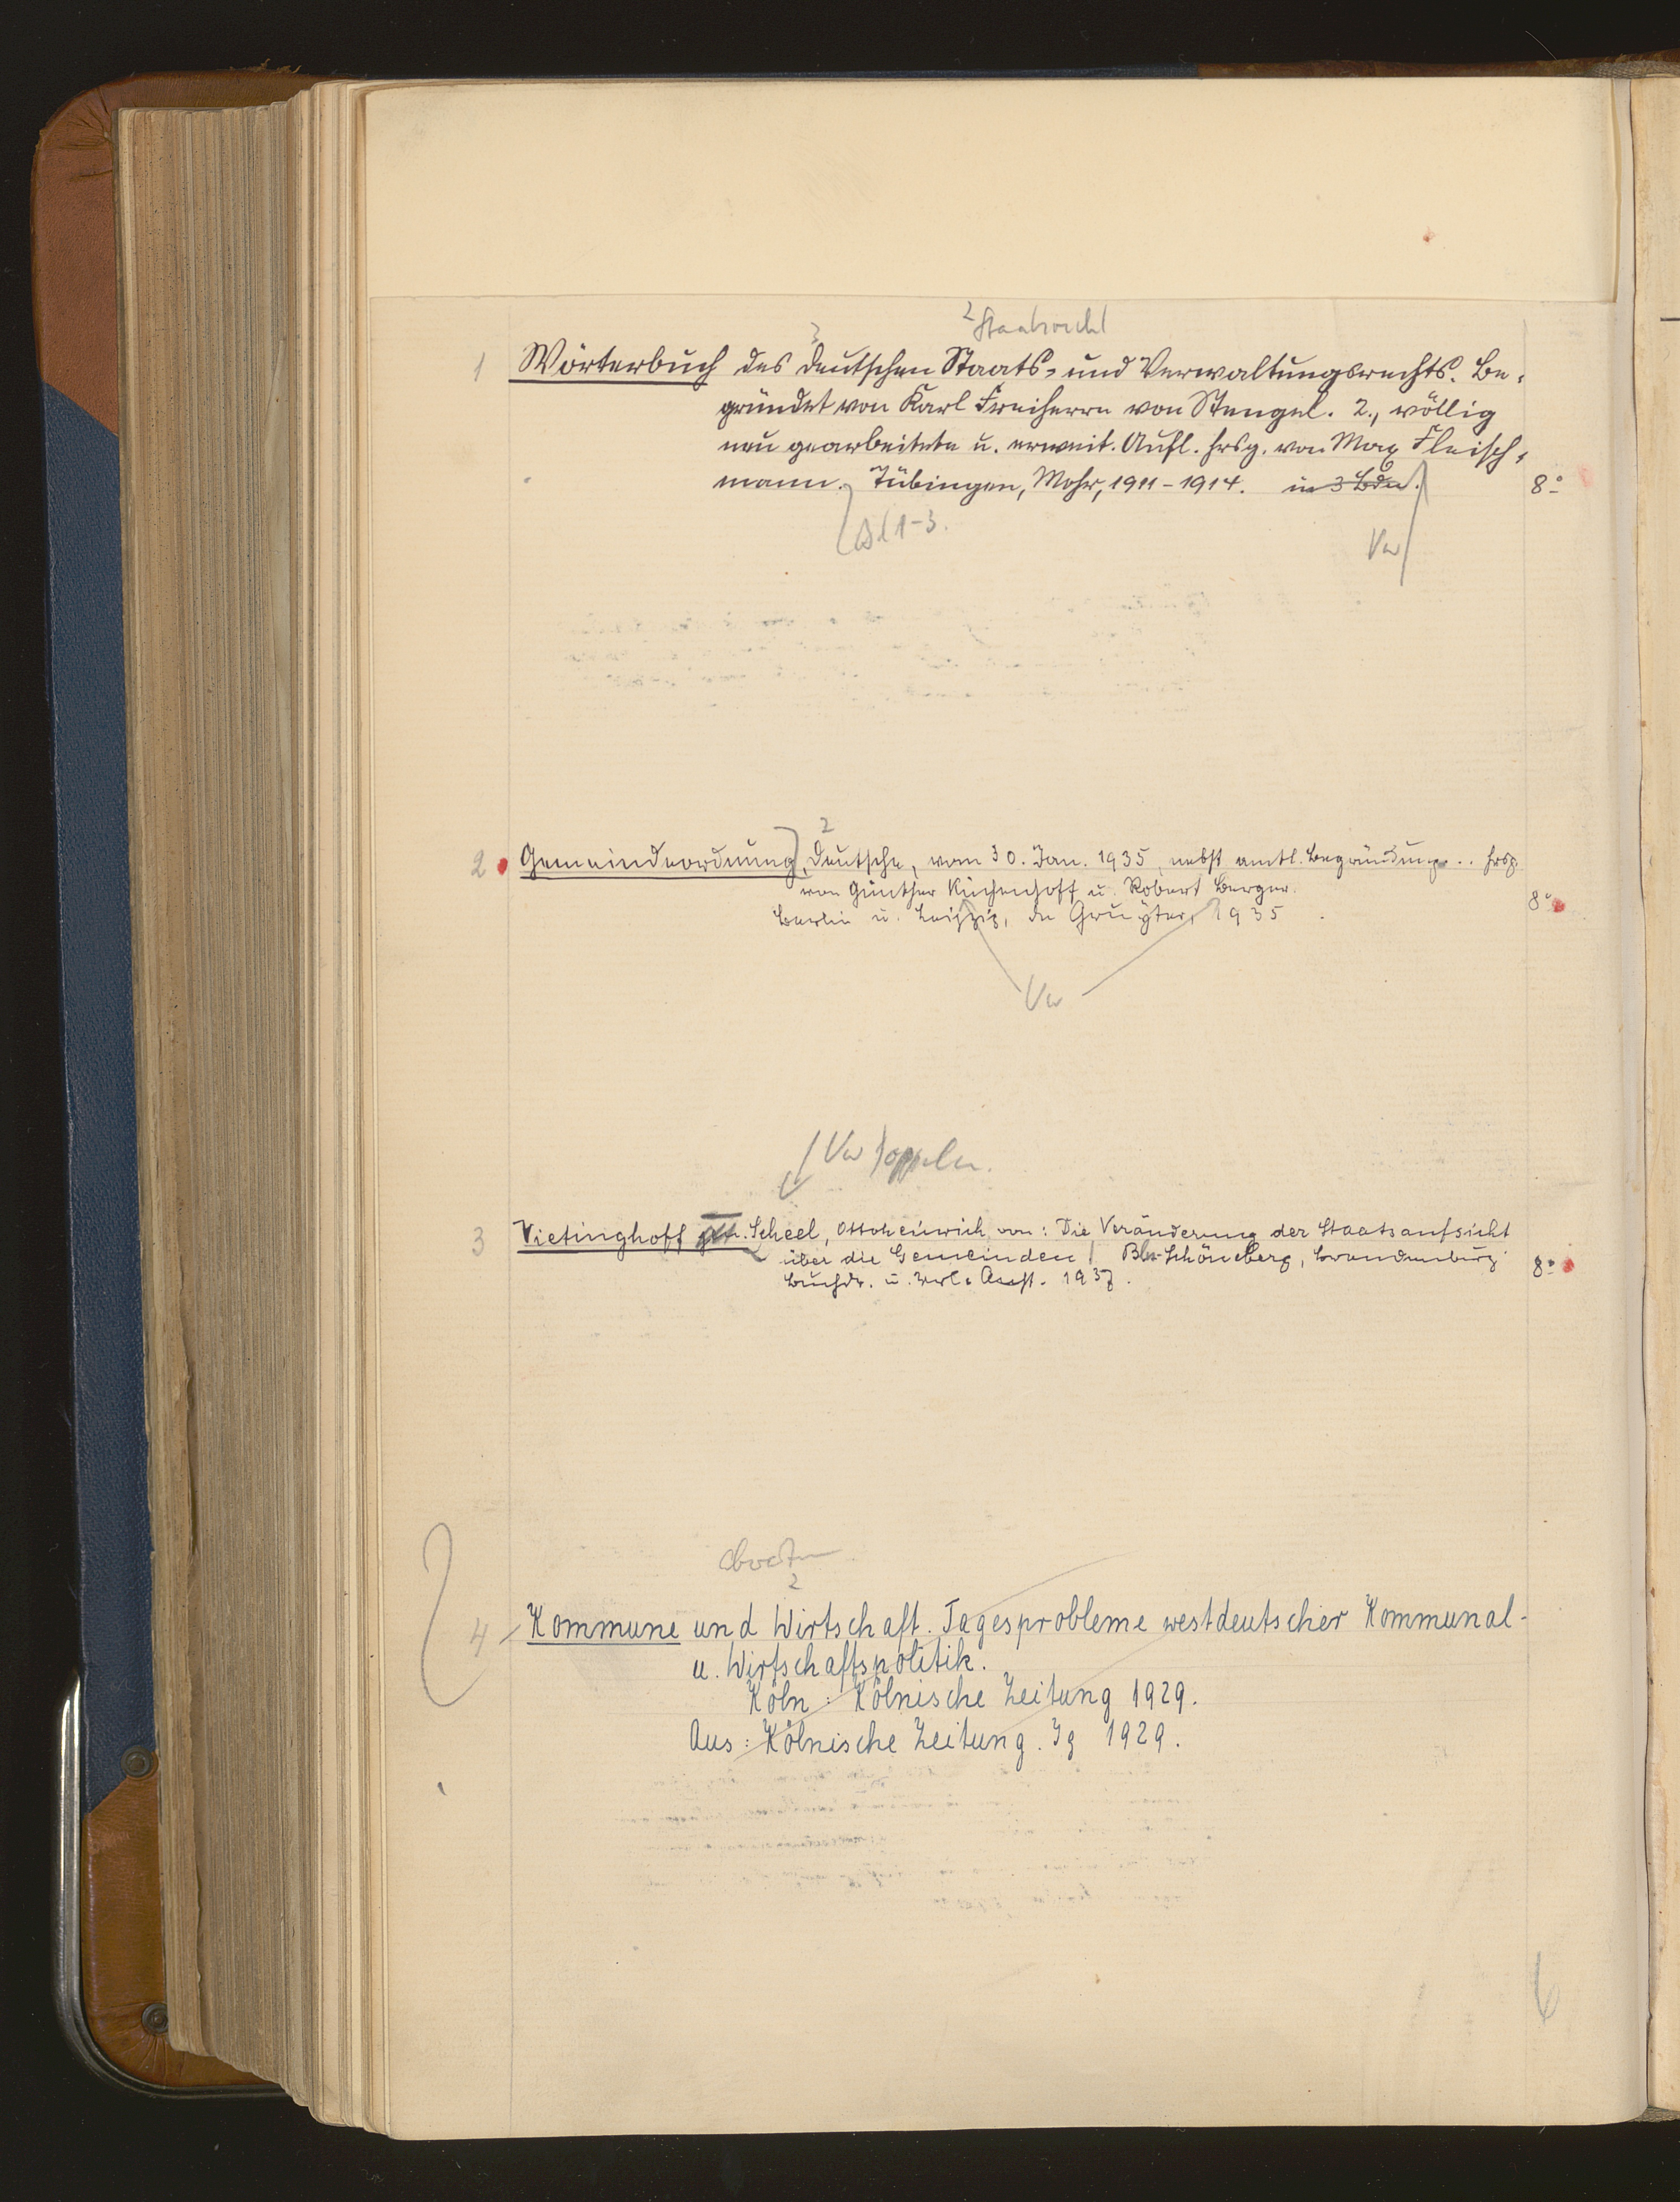 2 Staatsrecht
3
1 Wörterbuch des deutschen Staats- und Verwaltungsrechts. Be-
gründet von Karl Freiherrn von Stengel. 2., völlig
neu gearbeitete u. erweit. Aufl. hrsg. von Max Fleisch-
mann. Tübingen, Mohr, 1911-1914. in 3 Bdn. 8°
Bd 1-3.
Vw
2
2 Gemeindeordnung, Deutsche, vom 30. Jan. 1935, nebst amtl. Begründung... hrsg.
von Günther Küchenhoff u. Robert Berger.
Berlin u. Leipzig, de Gruyter, 1935. 8°
Vw
Vw
3 Vietinghoff Scheel, Ottoheinrich von: Die Veränderung der Staatsaufsicht
über die Gemeinden. Bln-Schöneberg, Brandenburg.
Buchdr. u. Verl. 1937. 8°
2
4 Kommune und Wirtschaft. Tagesprobleme westdeutscher Kommunal-
u. Wirtschaftspolitik.
Köln: Kölnische Zeitung 1929.
Aus: Kölnische Zeitung. Jg 1929.
6